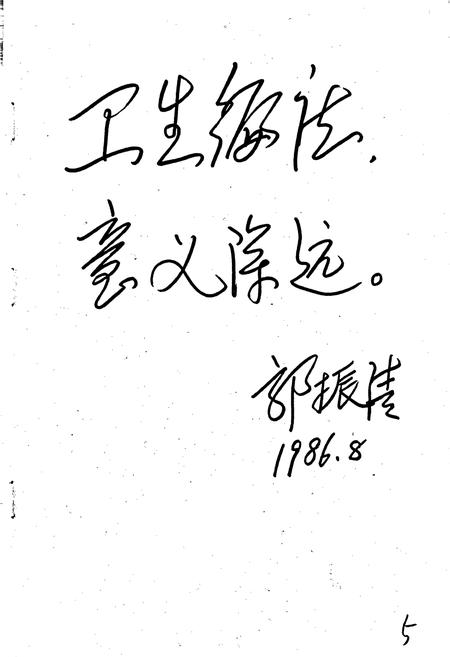 卫生编志,
意义深远。
郭振清
1986.8
5